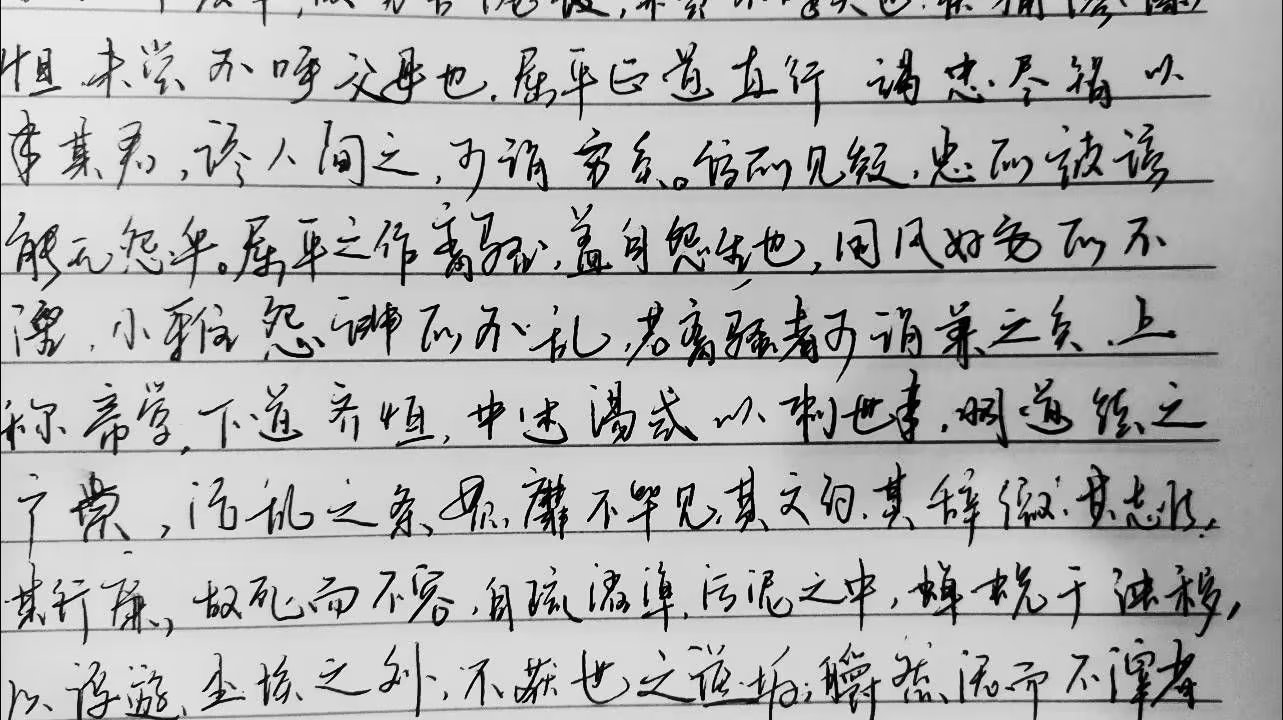 怛,未尝不呼父母也.屈平正道直行 竭忠尽智以
事其君,谗人间之,可谓穷矣。信而见疑,忠而被谤
能无怨乎。屈平之作离骚,盖自怨生也,国风好色而不
淫.小雅怨诽而不乱,若离骚者可谓兼之矣.上
称帝喾,下道齐桓,中述汤武以刺世事.明道德之
广崇,治乱之条贯,靡不毕见.其文约.其辞微.其志洁,
其行廉,故死而不容,自疏濯淖.污泥之中,蝉蜕于浊秽,
以浮游尘埃之外,不获世之滋垢,皭然泥而不滓者